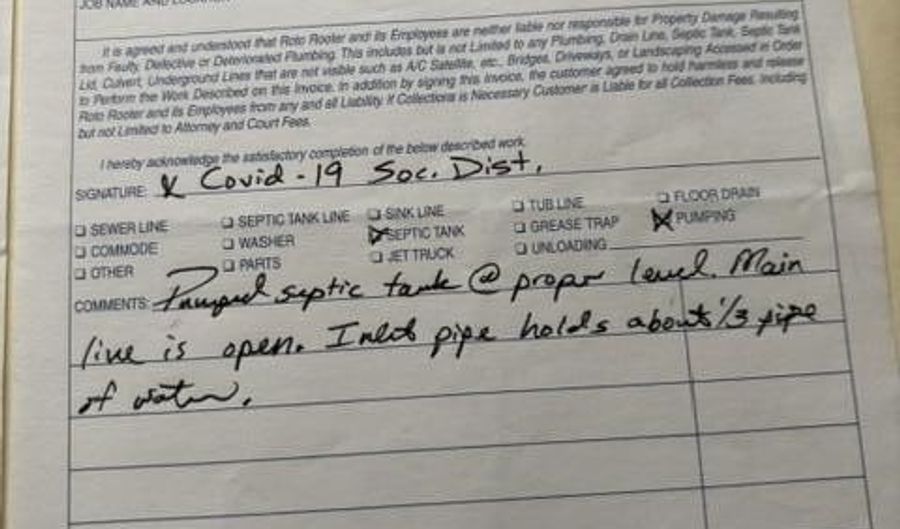 JOB NAME AND LOCATION
It is agreed and understood that Roto Rooter and its Employees are neither liable nor responsible for Property Damage Resulting
from Faulty, Defective or Deteriorated Plumbing. This includes but is not Limited to any Plumbing, Drain Line, Septic Tank, Septic Tank
Lid, Culvert, Underground Lines that are not visible such as A/C Satellite, etc., Bridges, Driveways, or Landscaping Accessed in Order
to Perform the Work Described on this Invoice. In addition by signing this Invoice, the customer agreed to hold harmless and release
Roto Rooter and its Employees from any and all Liability. If Collections is Necessary Customer is Liable for all Collection Fees, Including
but not Limited to Attorney and Court Fees.
I hereby acknowledge the satisfactory completion of the below described work.
SIGNATURE: X Covid-19 Soc. Dist.
SEWER LINE SEPTIC TANK LINE SINK LINE TUB LINE FLOOR DRAIN
COMMODE WASHER SEPTIC TANK GREASE TRAP PUMPING
OTHER PARTS JET TRUCK UNLOADING
COMMENTS: Pumped septic tank @ proper level. Main
line is open. Inlet pipe holds about 1/3 pipe
of water.